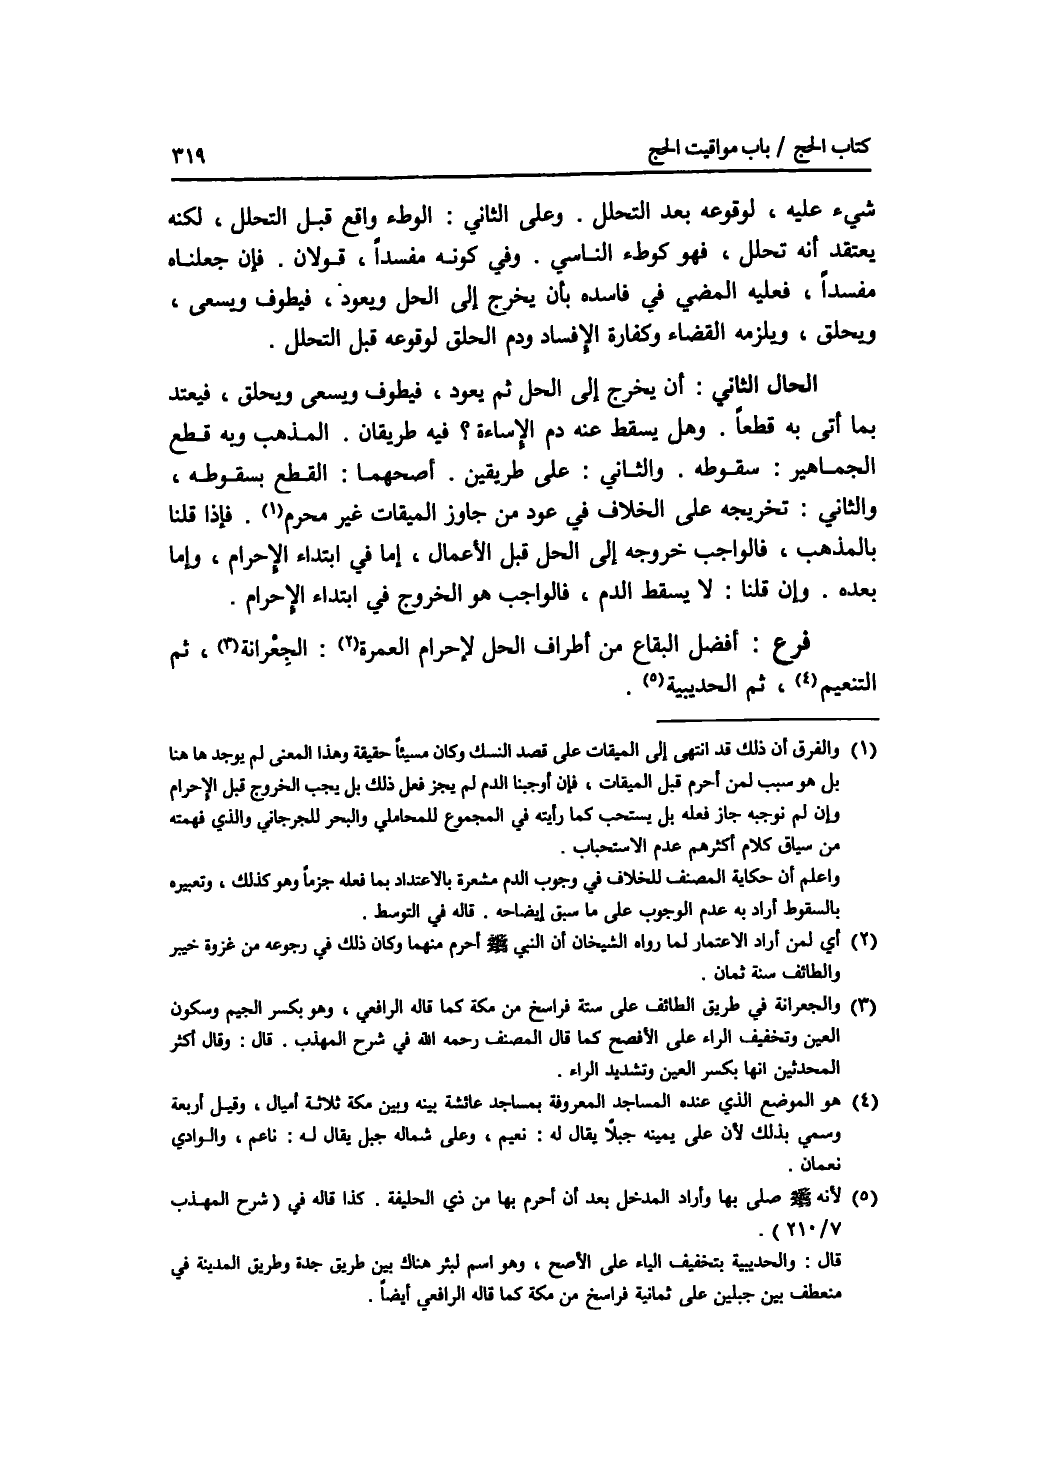 كتاب الحج / باب مواقيت الحج ٣١٩
شيء عليه ، لوقوعه بعد التحلل . وعلى الثاني : الوطء واقع قبل التحلل ، لكنه
يعتقد أنه تحلل ، فهو كوطء الناسي . وفي كونه مفسداً ، قولان . فإن جعلناه
مفسداً ، فعليه المضي في فاسده بأن يخرج إلى الحل ويعود ، فيطوف ويسعى ،
ويحلق ، ويلزمه القضاء وكفارة الإفساد ودم الحلق لوقوعه قبل التحلل .
الحال الثاني : أن يخرج إلى الحل ثم يعود ، فيطوف ويسعى ويحلق ، فيعتد
بما أتى به قطعاً . وهل يسقط عنه دم الإساءة ؟ فيه طريقان . المذهب وبه قطع
الجماهير : سقوطه . والثاني : على طريقين . أصحهما : القطع بسقوطه ،
والثاني : تخريجه على الخلاف في عود من جاوز الميقات غير محرم(١) . فإذا قلنا
بالمذهب ، فالواجب خروجه إلى الحل قبل الأعمال ، إما في ابتداء الإحرام ، وإما
بعده . وإن قلنا : لا يسقط الدم ، فالواجب هو الخروج في ابتداء الإحرام .
فرع : أفضل البقاع من أطراف الحل لإحرام العمرة(٢) : الجِعْرانة(٣) ، ثم
التنعيم(٤) ، ثم الحديبية(٥) .
(١) والفرق أن ذلك قد انتهى إلى الميقات على قصد النسك وكان مسيئاً حقيقة وهذا المعنى لم يوجد ها هنا
بل هو سبب لمن أحرم قبل الميقات ، فإن أوجبنا الدم لم يجز فعل ذلك بل يجب الخروج قبل الإحرام
وإن لم نوجبه جاز فعله بل يستحب كما رأيته في المجموع للمحاملي والبحر للجرجاني والذي فهمته
من سياق كلام أكثرهم عدم الاستحباب .
واعلم أن حكاية المصنف للخلاف في وجوب الدم مشعرة بالاعتداد بما فعله جزماً وهو كذلك ، وتعبيره
بالسقوط أراد به عدم الوجوب على ما سبق إيضاحه . قاله في التوسط .
(٢) أي لمن أراد الاعتمار لما رواه الشيخان أن النبي ﷺ أحرم منهما وكان ذلك في رجوعه من غزوة خيبر
والطائف سنة ثمان .
(٣) والجعرانة في طريق الطائف على ستة فراسخ من مكة كما قاله الرافعي ، وهو بكسر الجيم وسكون
العين وتخفيف الراء على الأفصح كما قال المصنف رحمه الله في شرح المهذب . قال : وقال أكثر
المحدثين انها بكسر العين وتشديد الراء .
(٤) هو الموضع الذي عنده المساجد المعروفة بمساجد عائشة بينه وبين مكة ثلاثة أميال ، وقيل أربعة
وسمي بذلك لأن على يمينه جبلًا يقال له : نعيم ، وعلى شماله جبل يقال له : ناعم ، والوادي
نعمان .
(٥) لأنه ﷺ صلى بها وأراد المدخل بعد أن أحرم بها من ذي الحليفة . كذا قاله في ( شرح المهذب
٧/ ٢١٠ ) .
قال : والحديبية بتخفيف الياء على الأصح ، وهو اسم لبئر هناك بين طريق جدة وطريق المدينة في
منعطف بين جبلين على ثمانية فراسخ من مكة كما قاله الرافعي أيضاً .